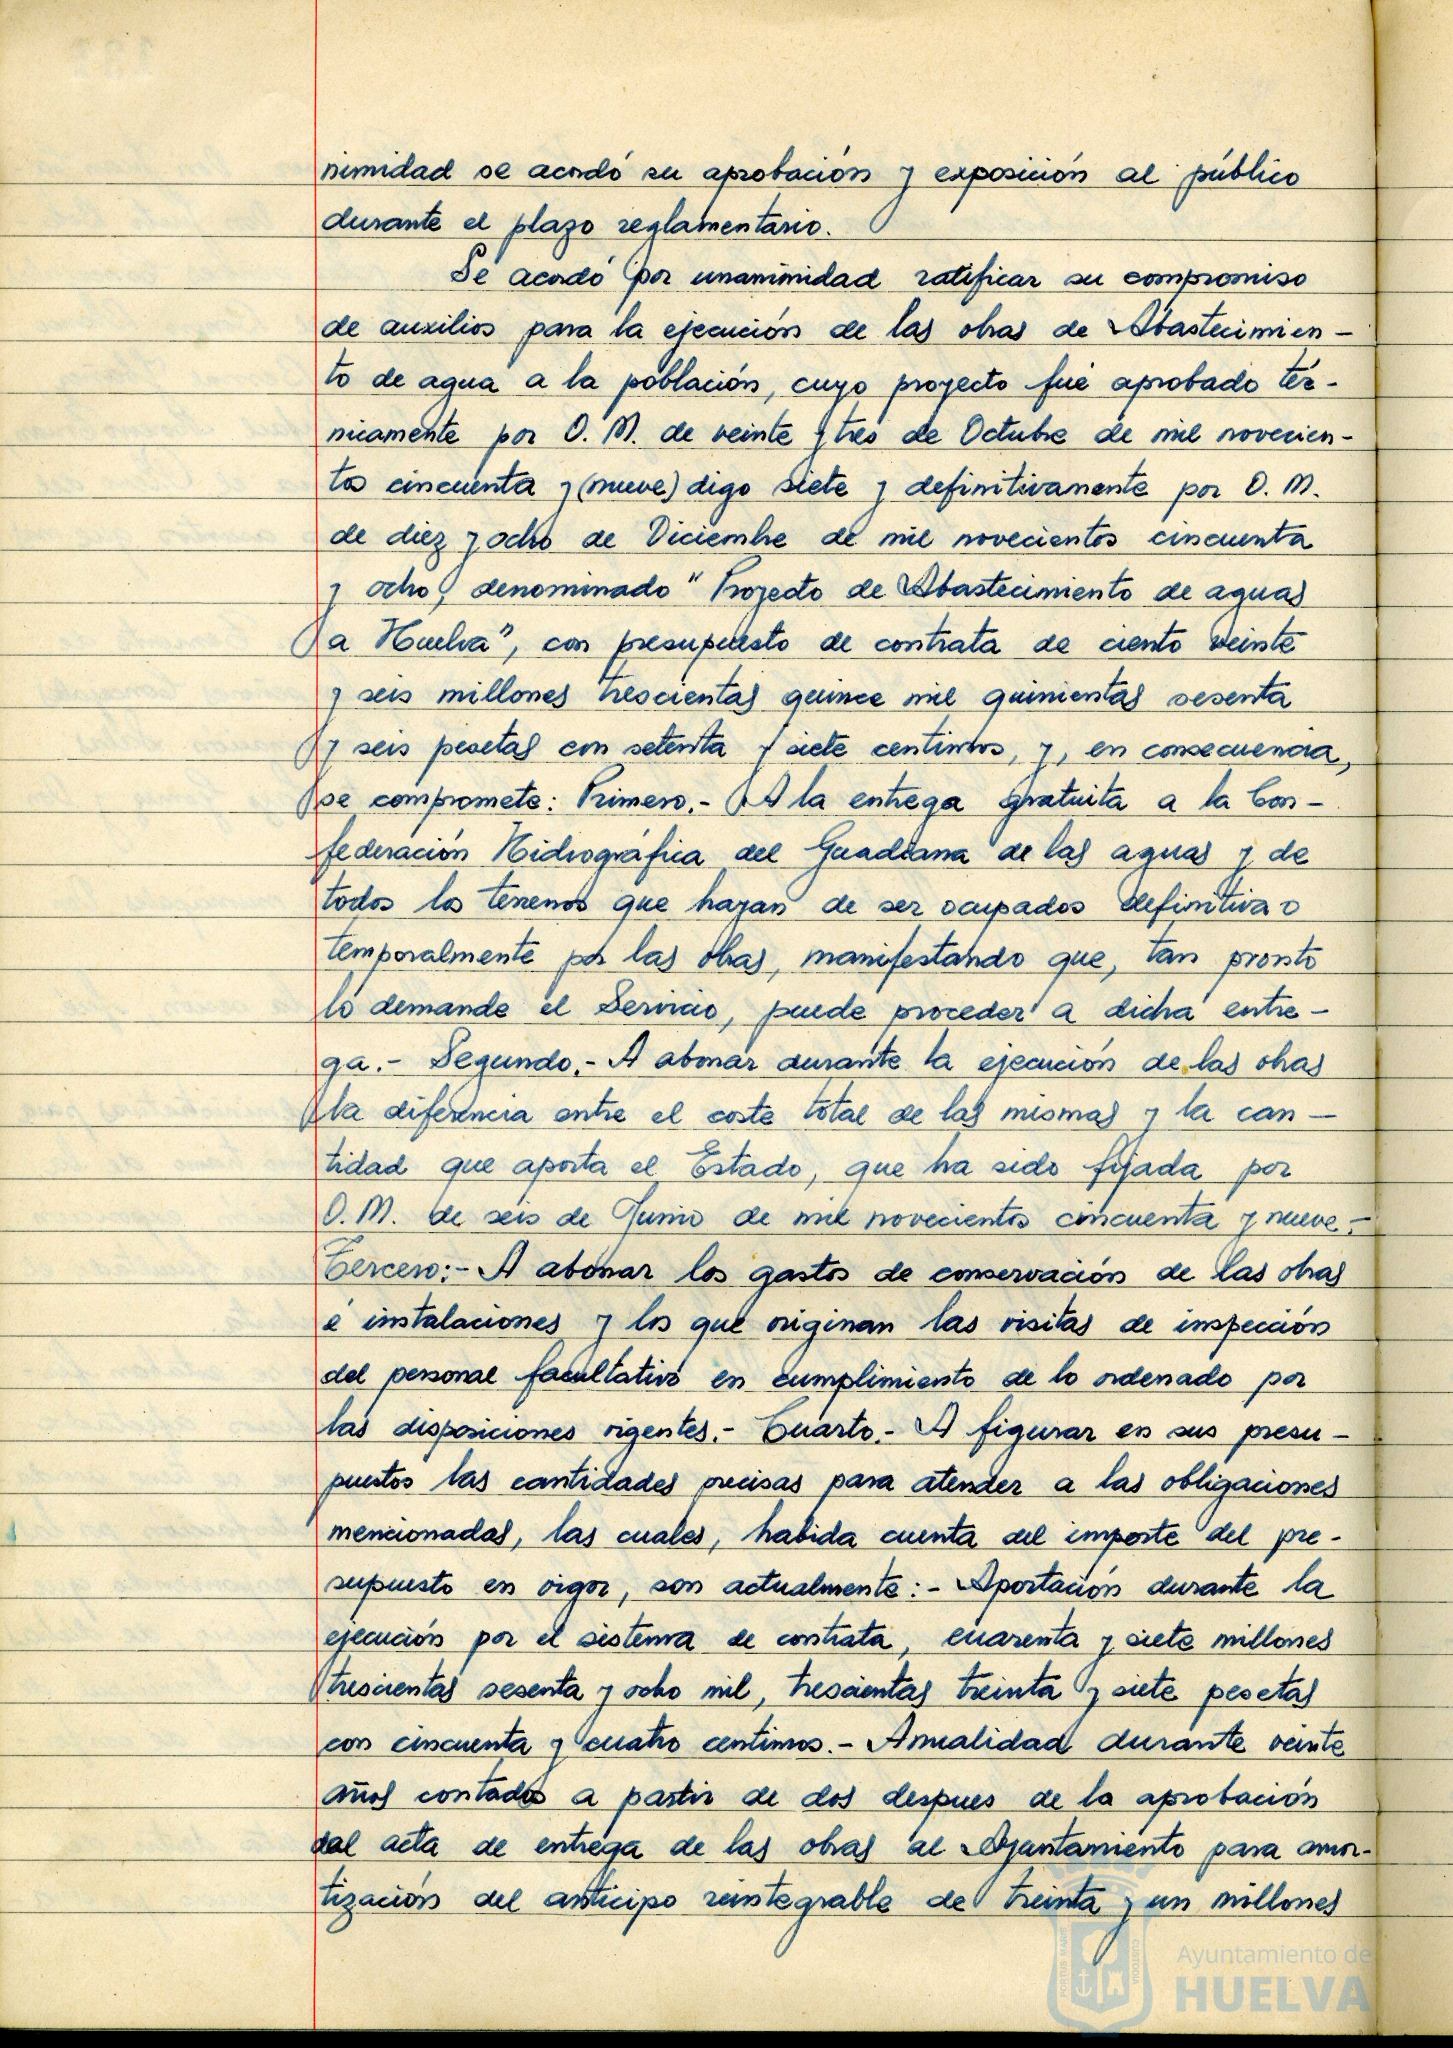 nimidad se acordó su aprobación y exposición al público
durante el plazo reglamentario.
Se acordó por unanimidad ratificar su compromiso
de auxilios para la ejecución de las obras de Abastecimien-
to de agua a la población, cuyo proyecto fué aprobado téc-
nicamente por O. M. de veinte y tres de Octubre de mil novecien-
tos cincuenta y (nueve) digo siete y definitivamente por O. M.
de diez y ocho de Diciembre de mil novecientos cincuenta
y ocho, denominado "Proyecto de Abastecimiento de aguas
a Huelva", con presupuesto de contrata de ciento veinte
y seis millones trescientas quince mil quinientas sesenta
y seis pesetas con setenta y siete centimos, y, en consecuencia,
se compromete: Primero.- A la entrega gratuita a la Con-
federación Hidrográfica del Guadiana de las aguas y de
todos los terrenos que hayan de ser ocupados definitiva o
temporalmente por las obras, manifestando que, tan pronto
lo demande el Servicio, puede proceder a dicha entre-
ga.- Segundo.- A abonar durante la ejecución de las obras
la diferencia entre el coste total de las mismas y la can-
tidad que aporta el Estado, que ha sido fijada por
O. M. de seis de Junio de mil novecientos cincuenta y nueve.-
Tercero:- A abonar los gastos de conservación de las obras
é instalaciones y los que originan las visitas de inspección
del personal facultativo en cumplimiento de lo ordenado por
las disposiciones vigentes.- Cuarto.- A figurar en sus presu-
puestos las cantidades precisas para atender a las obligaciones
mencionadas, las cuales, habida cuenta del importe del pre-
supuesto en vigor, son actualmente:- Aportación durante la
ejecución por el sistema de contrata, cuarenta y siete millones
trescientas sesenta y ocho mil, trescientas treinta y siete pesetas
con cincuenta y cuatro centimos.- Anualidad durante veinte
años contados a partir de dos despues de la aprobación
del acta de entrega de las obras al Ayuntamiento para amor-
tización del anticipo reintegrable de treinta y un millones
Ayuntamiento de
HUELVA